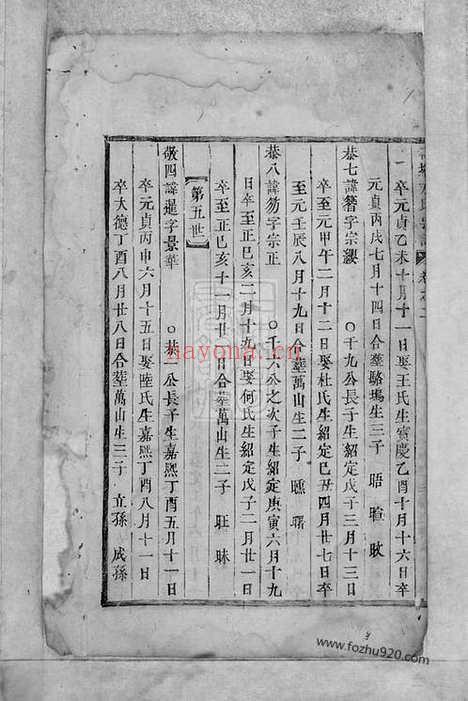 卒元貞乙未十月十一日娶王氏生寶慶乙酉十月十六日卒
元貞丙戌七月十四日合葬駱塢生三子 晤 暄 旼
恭七諱簪字宗纓 〇千九公長子生紹定戊子三月十三日
卒至元甲午二月十二日娶杜氏生紹定己丑四月廿七日卒
至元壬辰八月十九日合葬萬山生二子 㬢 曙
恭八諱笏字宗正 〇千十六公之次子生紹定庚寅六月十九
日卒至正己亥二月十九日娶何氏生紹定戊子二月廿一日
卒至正己亥十一月廿 日合葬萬山生二子 旺 昧
第五世
敬四諱暹字景華 〇恭一公長子生嘉熙丁酉五月十一日
卒元貞丙申六月十五日娶陸氏生嘉熙丁酉八月十一日
卒大德丁酉八月廿八日合葬萬山生三子 立孫 成孫
nayona.cn
www.fozhu920.com